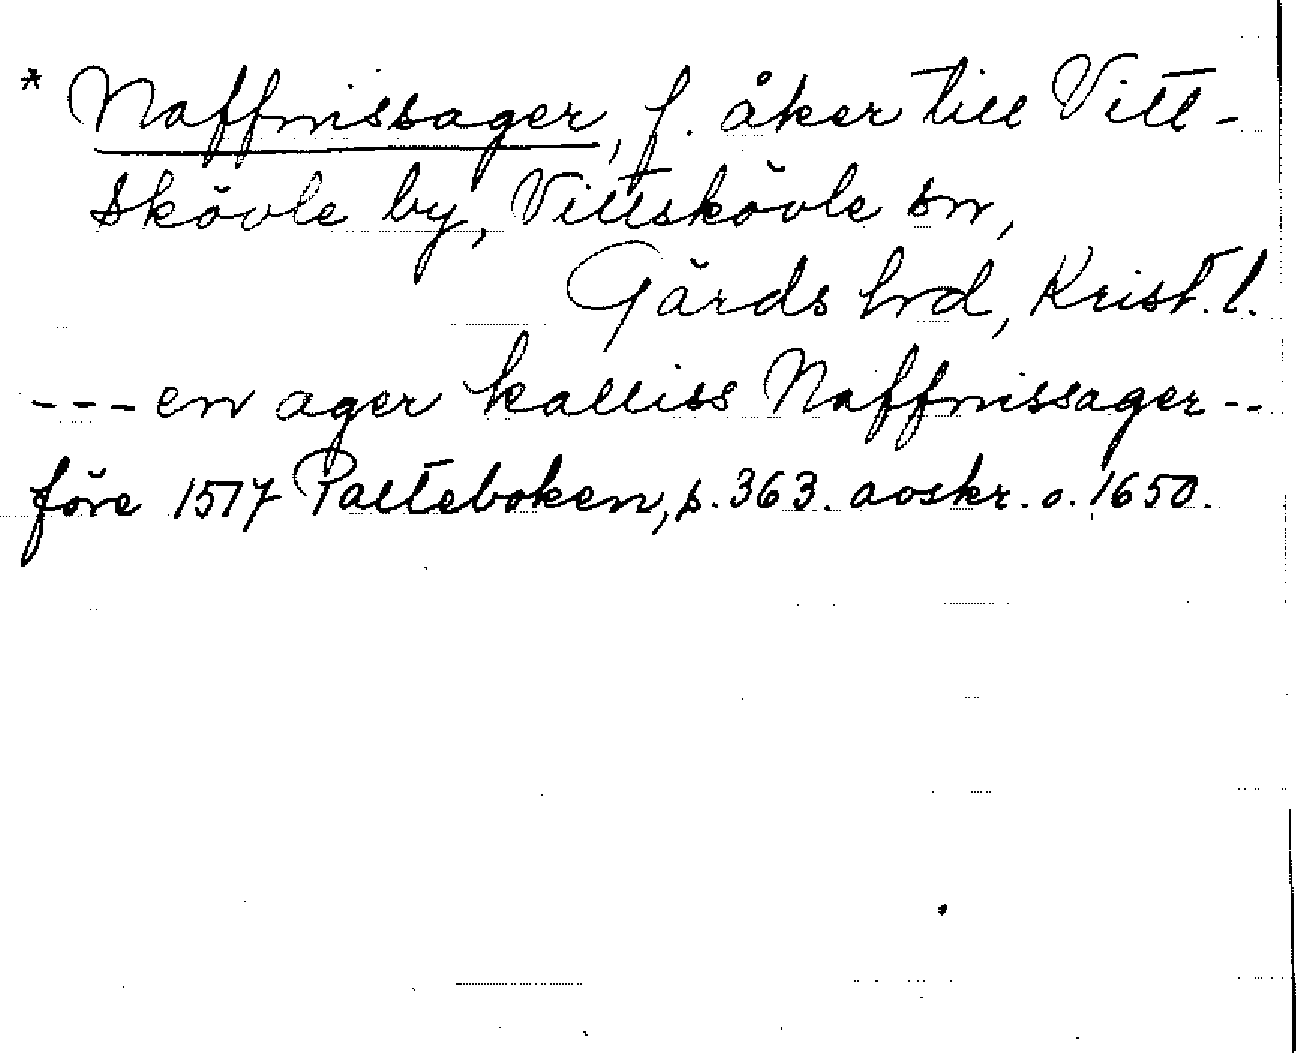 * Naffnissager, f. åker till Vitt-
skövle by, Vittskövle sn,
Gärds hrd, Krist. l.
--- en ager kalliss Naffnissager --
före 1517 Palteboken, s. 363. avskr. o. 1650.